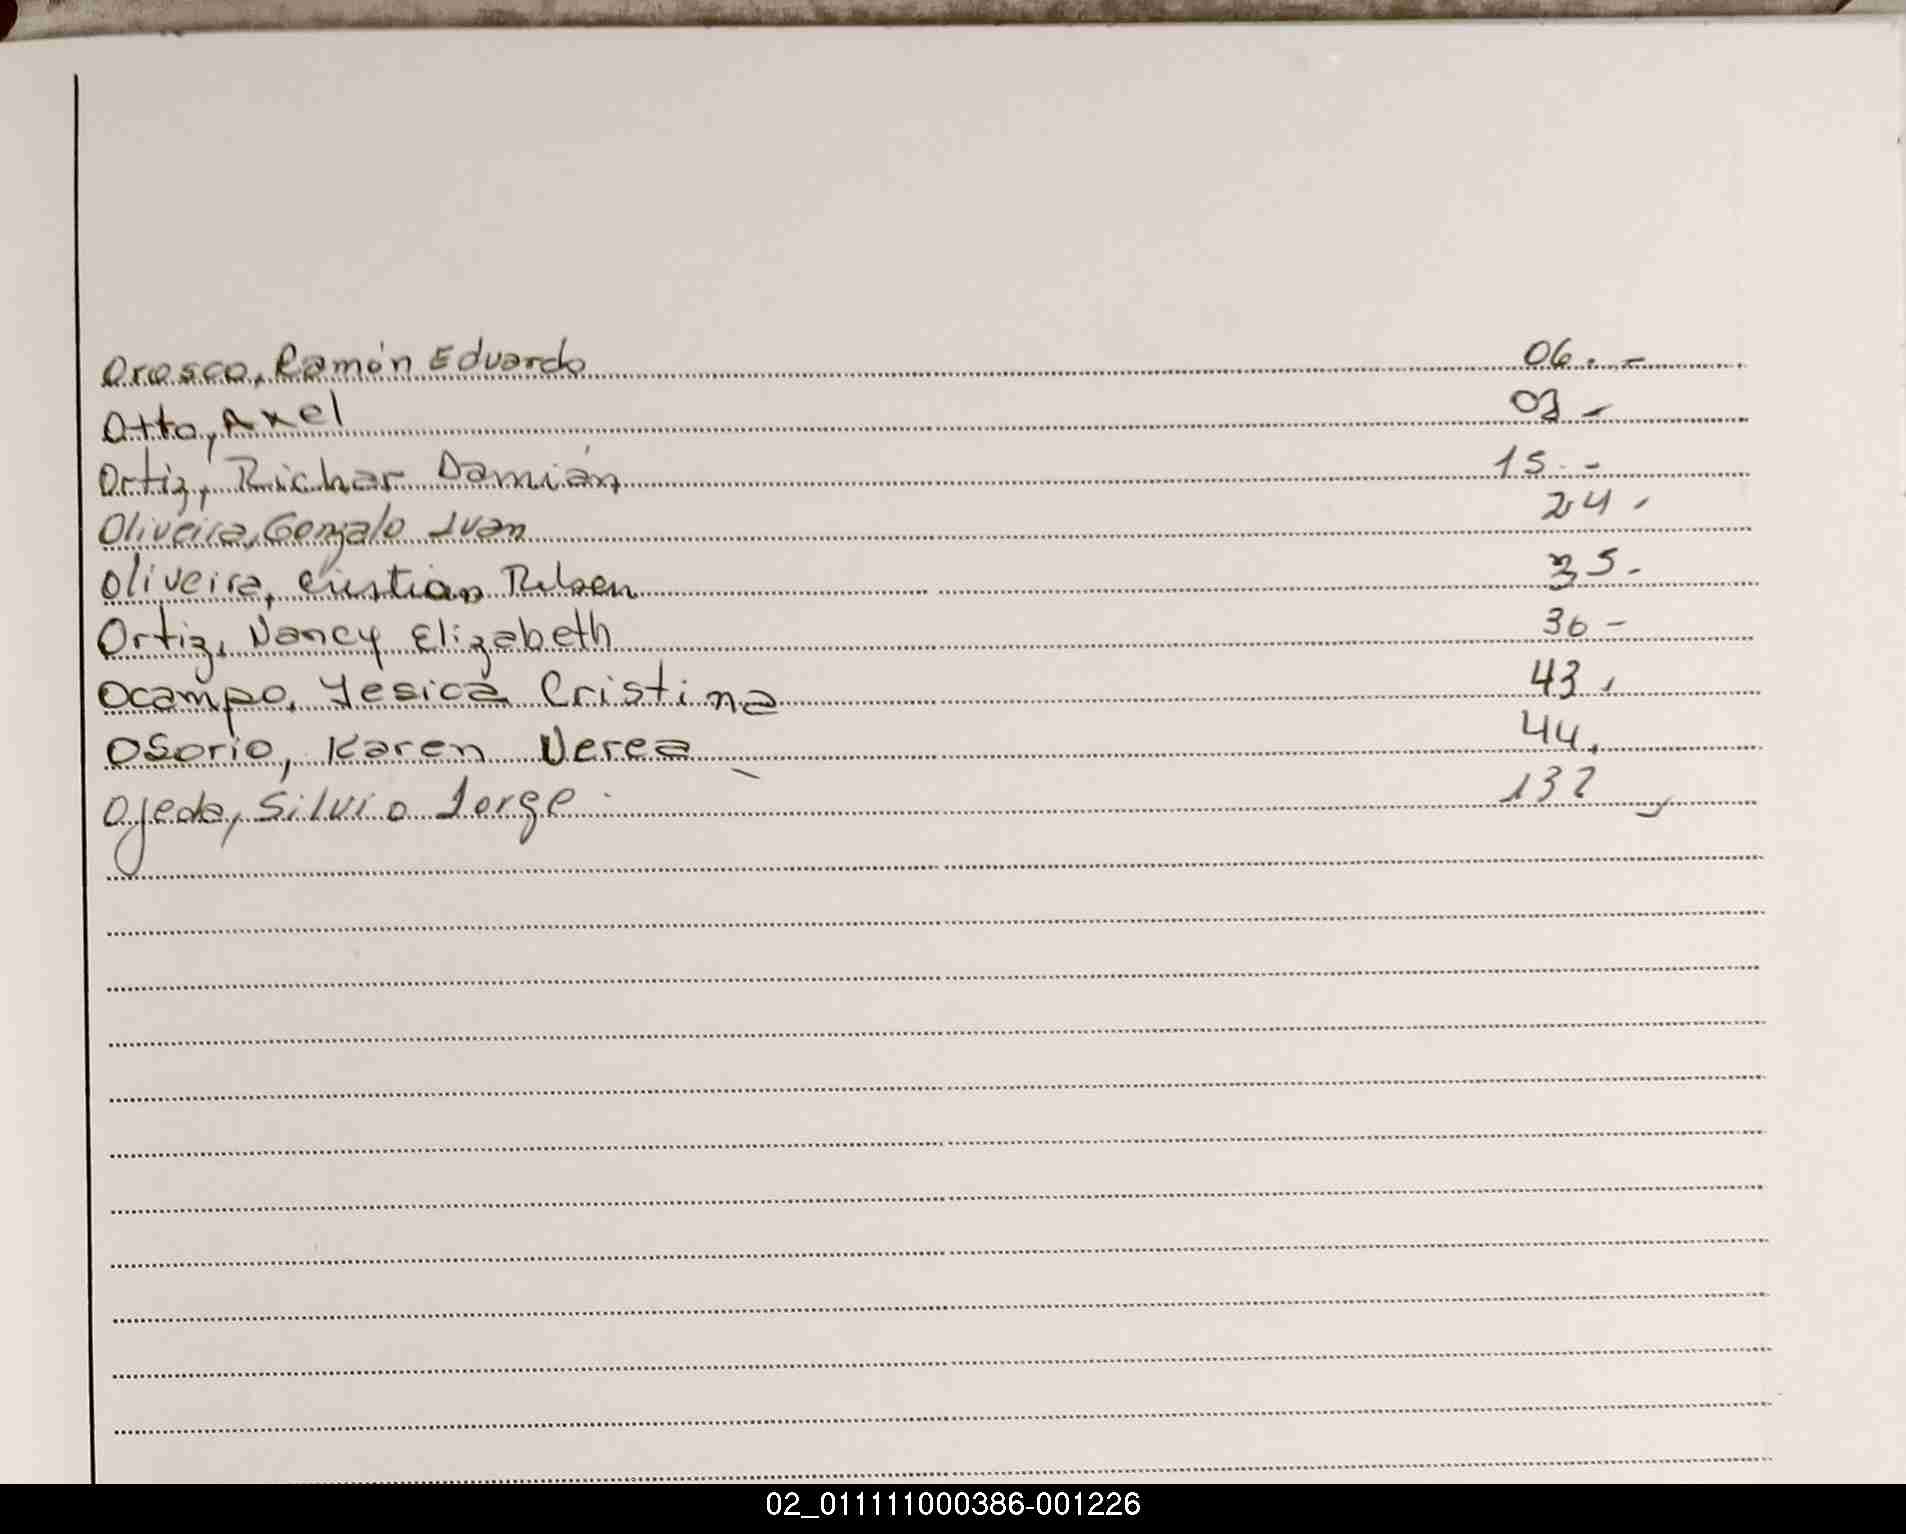 Orosco, Ramón Eduardo 06. -
Otto, Axel -
Ortiz, Richar Damián 15. -
Oliveira, Gonzalo Ivan 24 -
Oliveira, Cristian Ruben 35 -
Ortiz, Nancy Elizabeth 36 -
Ocampo, Yesica Cristina 43.
Osorio, Karen Nerea 44.
Ojeda, Silvio Jorge. 132
02_011111000386-001226